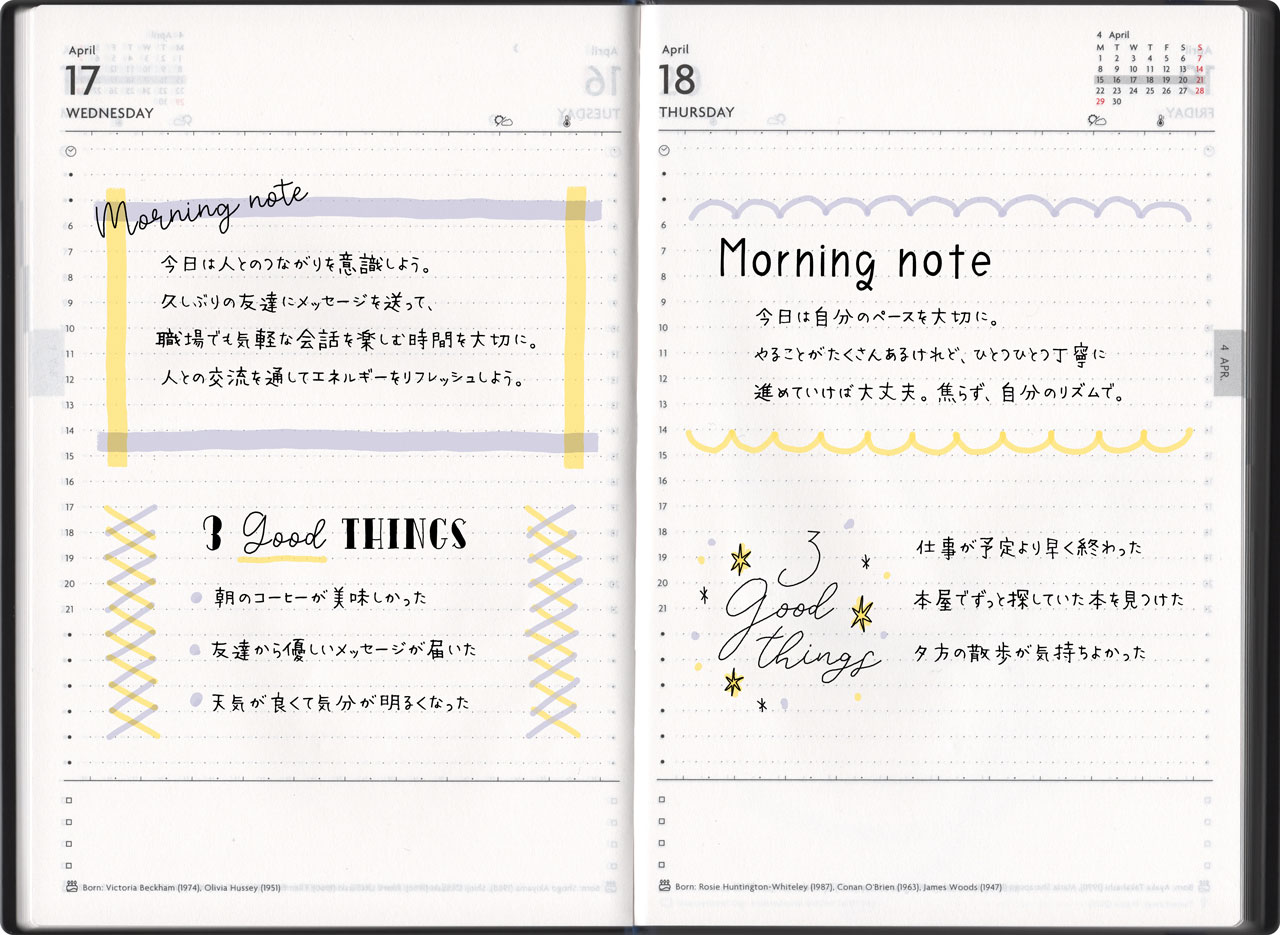 April
17
WEDNESDAY
Morning note
今日は人とのつながりを意識しよう。
久しぶりの友達にメッセージを送って、
職場でも気軽な会話を楽しむ時間を大切に。
人との交流を通してエネルギーをリフレッシュしよう。
6
7
8
9
10
11
12
13
14
15
16
17
18
19
20
21
3 Good THINGS
朝のコーヒーが美味しかった
友達から優しいメッセージが届いた
天気が良くて気分が明るくなった
Born: Victoria Beckham (1974), Olivia Hussey (1951)
April
18
THURSDAY
4 April
M T W T F S S
1 2 3 4 5 6 7
8 9 10 11 12 13 14
15 16 17 18 19 20 21
22 23 24 25 26 27 28
29 30
Morning note
今日は自分のペースを大切に。
やることがたくさんあるけれど、ひとつひとつ丁寧に
進めていけば大丈夫。焦らず、自分のリズムで。
6
7
8
9
10
11
12
13
14
15
16
17
18
19
20
21
3
Good
things
仕事が予定より早く終わった
本屋でずっと探していた本を見つけた
夕方の散歩が気持ちよかった
4 APR.
Born: Rosie Huntington-Whiteley (1987), Conan O'Brien (1963), James Woods (1947)